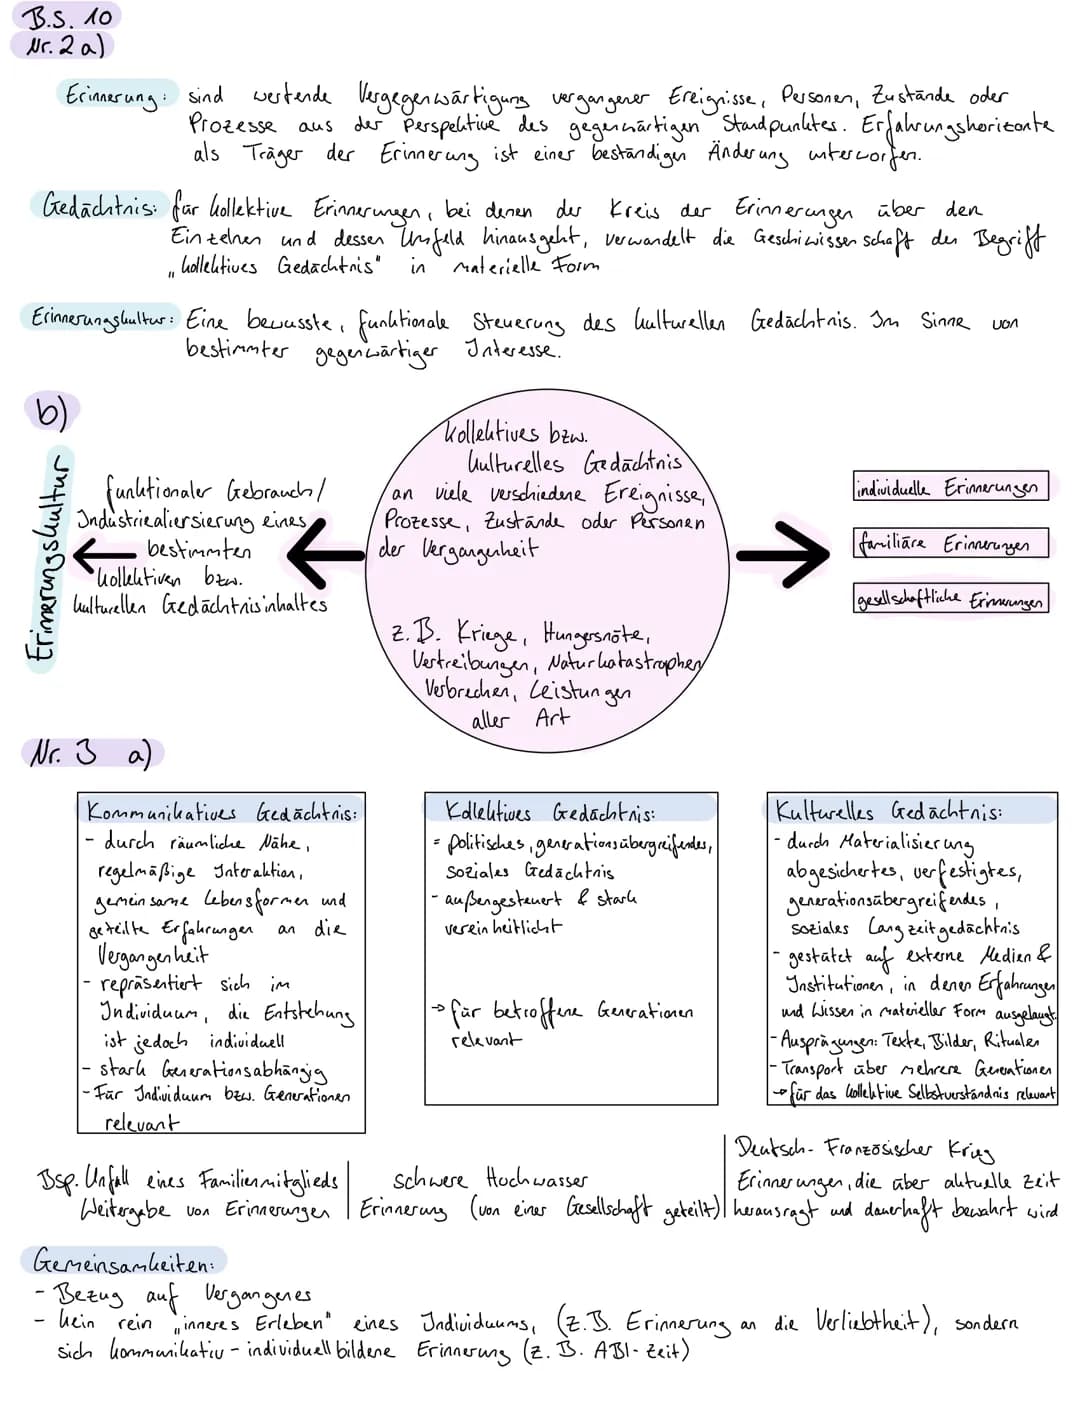 B.S. 10
Nr. 2 a)
Erinnerung: sind wertende Vergegenwärtigung vergangener Ereignisse, Personen, Zustände oder
Prozesse aus der Perspektive des gegenwärtigen Standpunktes. Erfahrungshorizonte
als Träger der Erinnerung ist einer beständigen Änderung unterworfen.
Gedächtnis: für kollektive Erinnerungen, bei denen der Kreis der Erinnerungen über den
Einzelnen und dessen Umfeld hinausgeht, verwandelt die Geschiwissenschaft den Begriff
„kollektives Gedächtnis" in materielle Form
Erinnerungskultur: Eine bewusste, funktionale Steuerung des kulturellen Gedächtnis. Im Sinne von
bestimmter gegenwärtiger Interesse.
b)
Erinnerungskultur
funktionaler Gebrauch/
Industriealiersierung eines
bestimmten
kollektiven bzw.
kulturellen Gedächtnisinhaltes
kollektives bzw.
kulturelles Gedächtnis
an viele verschiedene Ereignisse,
Prozesse, Zustände oder Personen
der Vergangenheit
z.B. Kriege, Hungersnöte,
Vertreibungen, Naturkatastrophen,
Verbrechen, Leistungen
aller Art
individuelle Erinnerungen
familiäre Erinnerungen
gesellschaftliche Erinnerungen
Nr. 3 a)
Kommunikatives Gedächtnis:
- durch räumliche Nähe,
regelmäßige Interaktion,
gemeinsame Lebensformen und
geteilte Erfahrungen an die
Vergangenheit
- repräsentiert sich im
Individuum, die Entstehung
ist jedoch individuell
- stark Generationsabhängig
- Für Individuum bzw. Generationen
relevant
Kollektives Gedächtnis:
= politisches, generationsübergreifendes,
soziales Gedächtnis
- außengesteuert & stark
vereinheitlicht
→ für betroffene Generationen
relevant
Kulturelles Gedächtnis:
- durch Materialisierung
abgesichertes, verfestigtes,
generationsübergreifendes,
soziales Langzeitgedächtnis
- gestützt auf externe Medien &
Institutionen, in denen Erfahrungen
und Wissen in materieller Form ausgelaugt.
- Ausprägungen: Texte, Bilder, Ritualen
- Transport über mehrere Generationen
→ für das kollektive Selbstverständnis relevant
Bsp. Unfall eines Familienmitglieds
Weitergabe von Erinnerungen
schwere Hochwasser
Erinnerung (von einer Gesellschaft geteilt)
Deutsch-Französischer Krieg
Erinnerungen, die über aktuelle Zeit
herausragt und dauerhaft bewahrt wird
Gemeinsamkeiten:
- Bezug auf Vergangenes
- kein rein „inneres Erleben" eines Individuums, (z.B. Erinnerung an die Verliebtheit), sondern
sich kommunikativ - individuell bildene Erinnerung (z.B. ABI-Zeit)